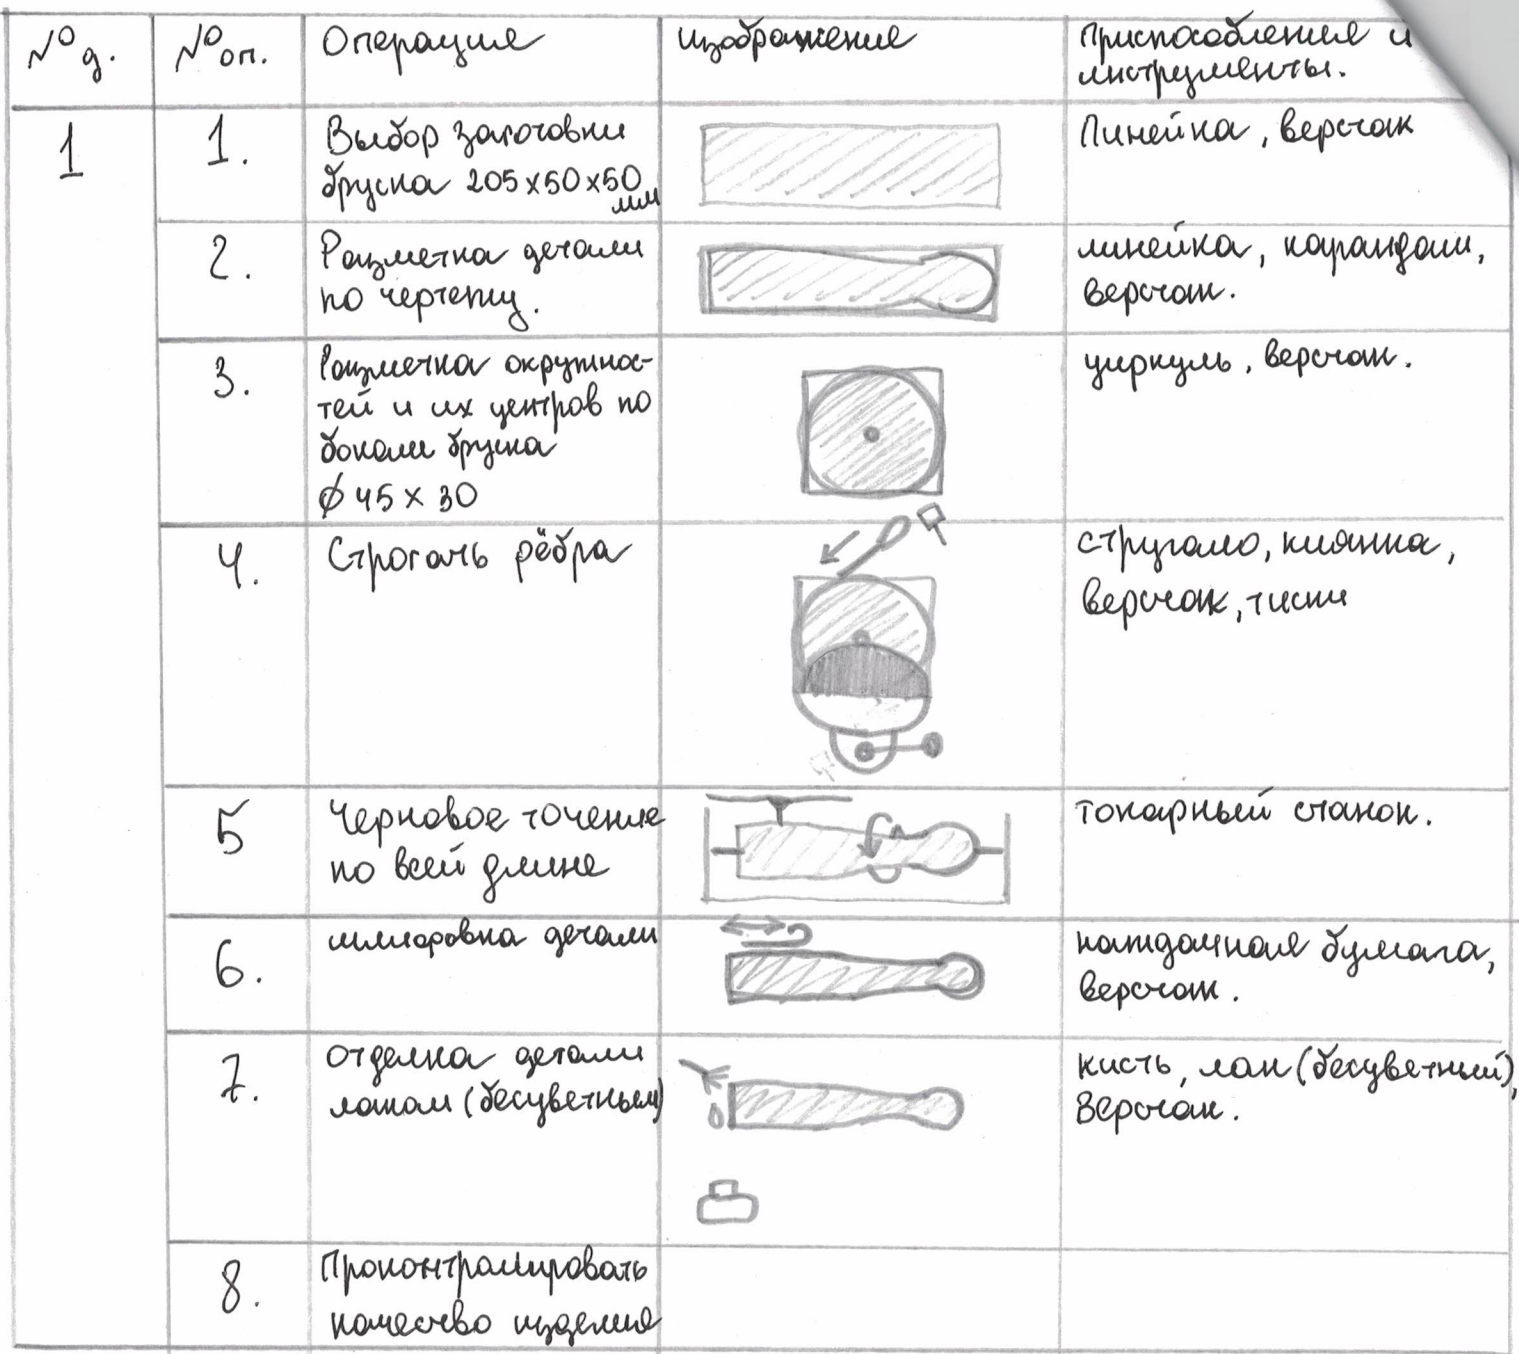 № д.
№ оп.
Операция
изображение
Приспособления и
инструменты.
1
1.
Выбор заготовки
бруска 205х50х50
мм
Линейка, верстак
2.
Разметка детали
по чертежу.
линейка, карандаш,
верстак.
3.
Разметка окружнос-
тей и их центров по
бокам бруска
ϕ 45 х 30
циркуль, верстак.
4.
Строгать рёбра
стругало, киянка,
верстак, тиски
5
Черновое точение
по всей длине
токарный станок.
6.
шлифовка детали
наждачная бумага,
верстак.
7.
отделка детали
лаком (бесцветным)
кисть, лак (бесцветный),
верстак.
8.
Проконтролировать
качество изделия